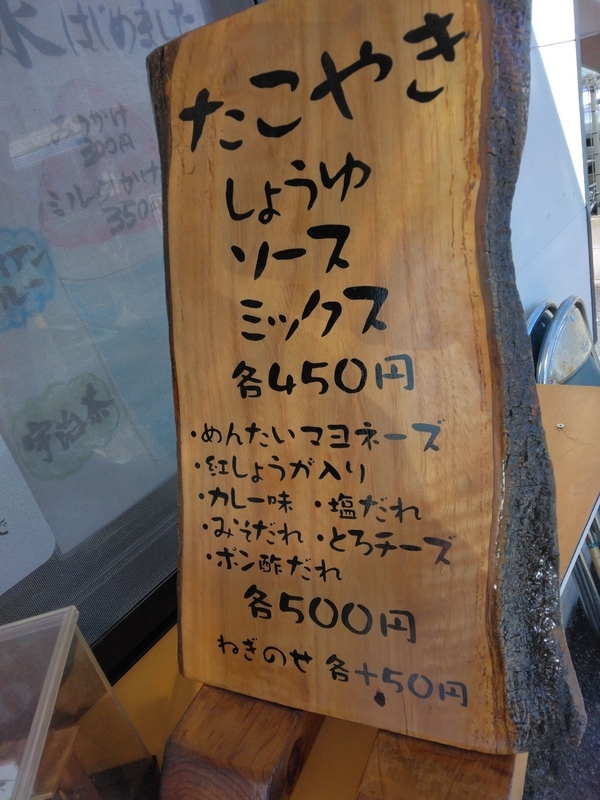 たこやき
しょうゆ
ソース
ミックス
各450円
・めんたいマヨネーズ
・紅しょうが入り
・カレー味 ・塩だれ
・みそだれ ・とろチーズ
・ポン酢だれ
各500円
ねぎのせ 各+50円
氷はじめました
300円
ミルクかけ
350円
宇治茶